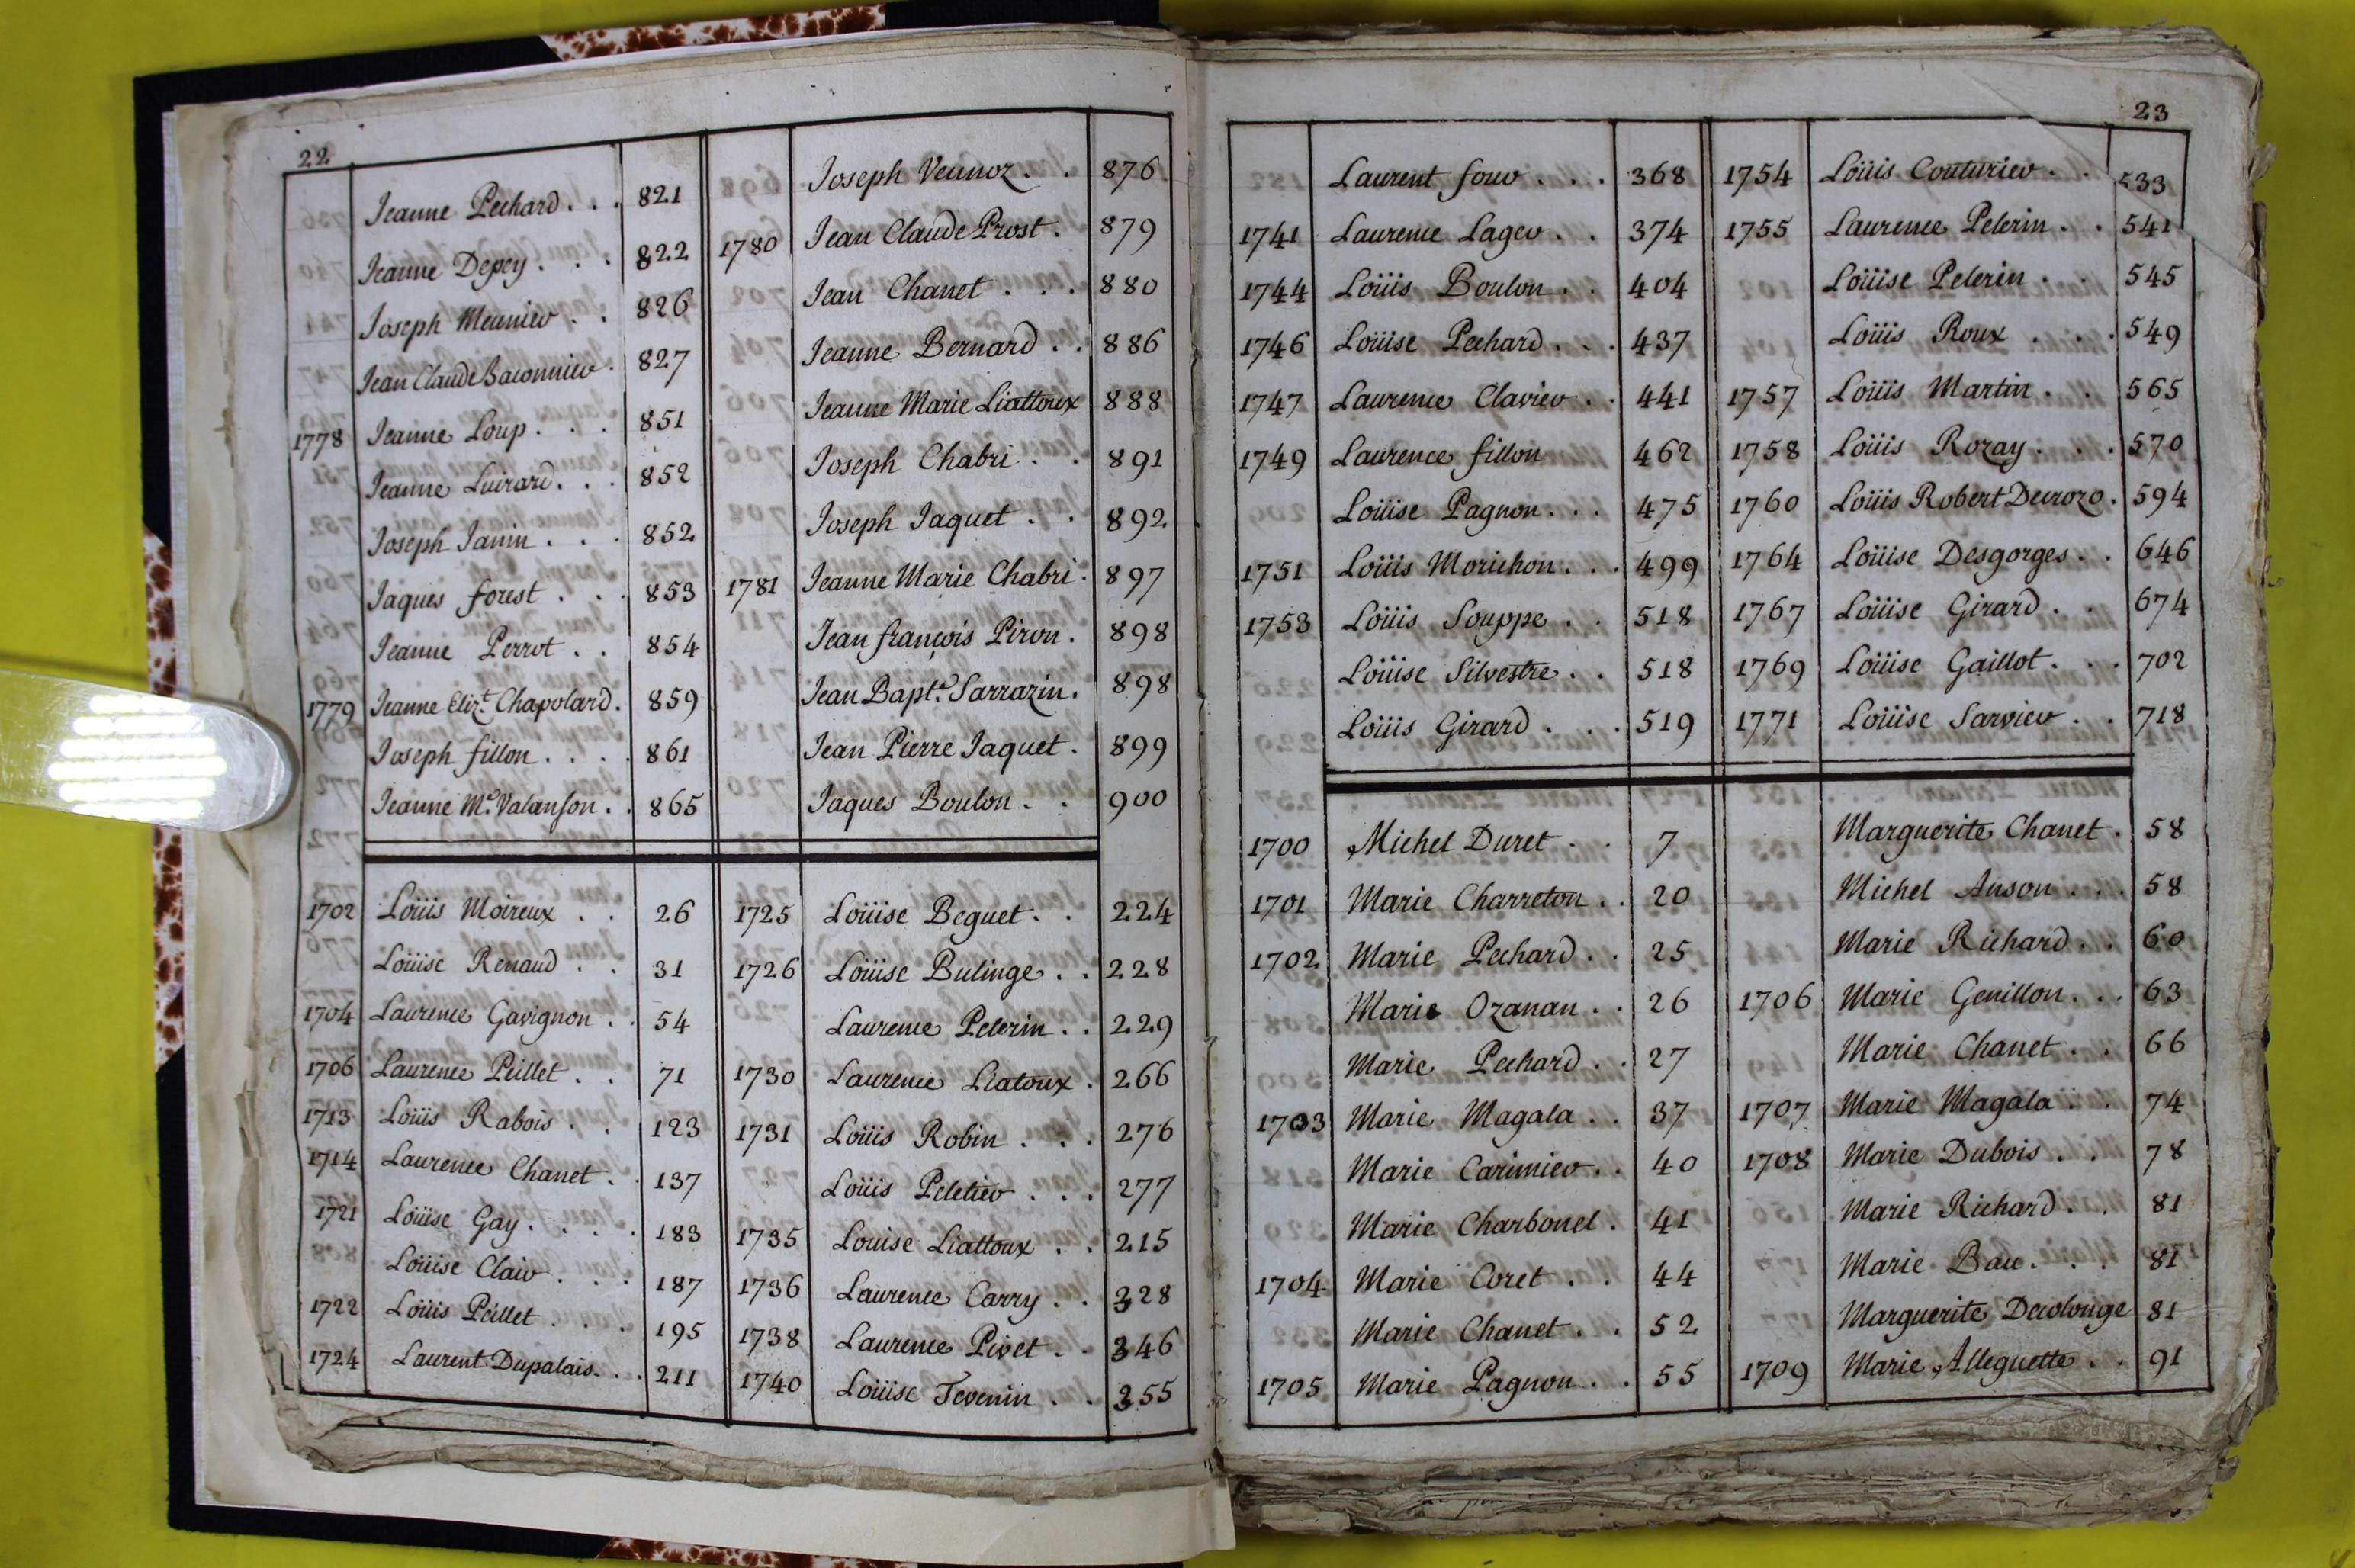 22
Jeanne Pechard . . . 821
Jeanne Depey . . . 822
Joseph Meunier . . 826
Jean Claude Baconnier . 827
1778 Jeanne Loup . . . 851
Jeanne Luirard . . . 852
Joseph Janin . . . 852
Jaques forest . . . 853
Jeanne Perrot . . 854
1779 Jeanne Eliz.t Chapolard . 859
Joseph fillon . . . . 861
Jeanne M.e Valanson . . 865
1702 Loüis Moireux . . 26
Loüise Renaud . . 31
1704 Laurence Gavignon . . 54
1706 Laurence Peillet . . 71
1713 Loüis Rabois . . 123
1714 Laurence Chanet . . 137
1721 Loüise Gay . . . . 183
Loüise Clair . . . 187
1722 Loüis Peillet . . . 195
1724 Laurent Dupalais . . . 211
Joseph Vennoz . . 876
1780 Jean Claude Prost . 879
Jean Chanet . . . 880
Jeanne Bernard . . 886
Jeanne Marie Liattoux 888
Joseph Chabri . . 891
Joseph Jaquet . . 892
1781 Jeanne Marie Chabri . 897
Jean françois Piron . 898
Jean Bapt.e Sarrazin . 898
Jean Pierre Jaquet . 899
Jaques Boulon . . 900
1725 Loüise Beguet . . 224
1726 Loüise Bulinge . . 228
Laurence Pelerin . . 229
1730 Laurence Liatoux . 266
1731 Loüis Robin . . . 276
Loüis Peletier . . . 277
1735 Louise Liattoux . . 215
1736 Laurence Carry . . 328
1738 Laurence Pivet . . 346
1740 Loüise Tevenin . . 355
23
Laurent four . . . 368
1741 Laurence Lager . . 374
1744 Loüis Boulon . . 404
1746 Loüise Pechard . . . 437
1747 Laurence Clavier . . 441
1749 Laurence fillon 462
Loüise Pagnon . . . 475
1751 Loüis Morichon . . . 499
1753 Loüis Souppe . . 518
Loüise Silvestre . . 518
Loüis Girard . . . 519
1700 Michel Duret . . 7
1701 Marie Charreton . . 20
1702 Marie Pechard . . 25
Marie Ozanan . . 26
Marie Pechard . . 27
1703 Marie Magala . . 37
Marie Carimier . . 40
Marie Charbonel . 41
1704 Marie Coret . . 44
Marie Chanet . . 52
1705 Marie Pagnon . . 55
1754 Loüis Couturier . . 533
1755 Laurence Pelerin . . 541
Loüise Pelerin . . 545
Loüis Roux . . . 549
1757 Loüis Martin . . 565
1758 Loüis Rozay . . . 570
1760 Loüis Robert Decrozo . 594
1764 Loüise Desgorges . . 646
1767 Loüise Girard . . 674
1769 Loüise Gaillot . . . 702
1771 Loüise Sarvier . . 718
Marguerite Chanet . 58
Michel Anson . . . 58
Marie Richard . . 60
1706 Marie Genillon . . . 63
Marie Chanet . . 66
1707 Marie Magala . . 74
1708 Marie Dubois . . 78
Marie Richard . . 81
Marie Bau . . . 81
Marguerite Decolonge 81
1709 Marie Alleguette . . 91